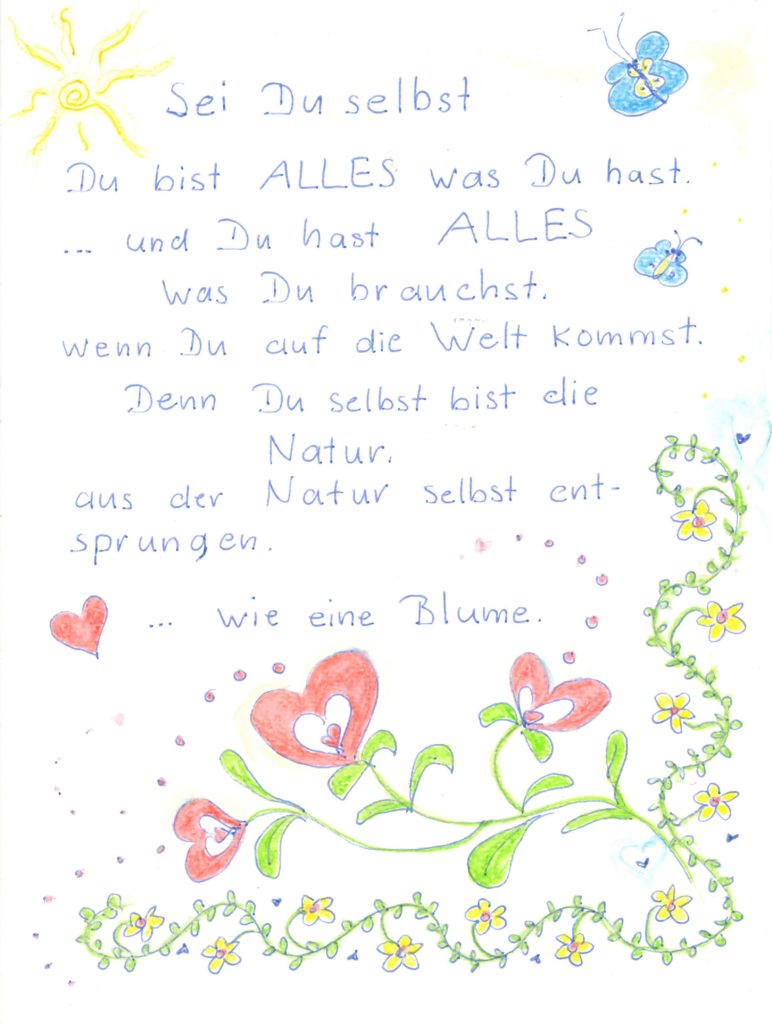 Sei Du selbst
Du bist ALLES was Du hast.
... und Du hast ALLES
was Du brauchst.
wenn Du auf die Welt kommst.
Denn Du selbst bist die
Natur.
aus der Natur selbst ent-
sprungen.
... wie eine Blume.